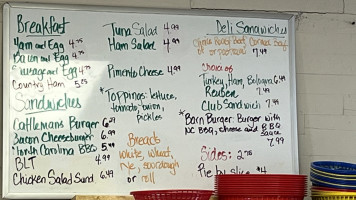 Breakfast
Ham and Egg 4.75
Bacon and Egg
Sausage and Egg 4.75
Country Ham 5.25
Sandwiches
Cattlemans Burger 6.29
Bacon Cheeseburger 6.99
North Carolina BBQ 5.99
BLT 4.99
Chicken Salad Sand 6.49
Tuna Salad 4.99
Ham Salad 4.99
Pimento Cheese 4.99
*Toppings: lettuce,
tomato, onion,
pickles
Breads
white, wheat,
rye, sourdough
or roll
Deli Sandwiches
Corned Beef
or pastrami 7.49
Choice of
Turkey, Ham, Bologna 6.49
Reuben 7.49
Club Sandwich 7.99
*Barn Burger: Burger with
NC BBQ, cheese and BBQ
sauce
7.99
Sides: 2.75
Pie by slice $4